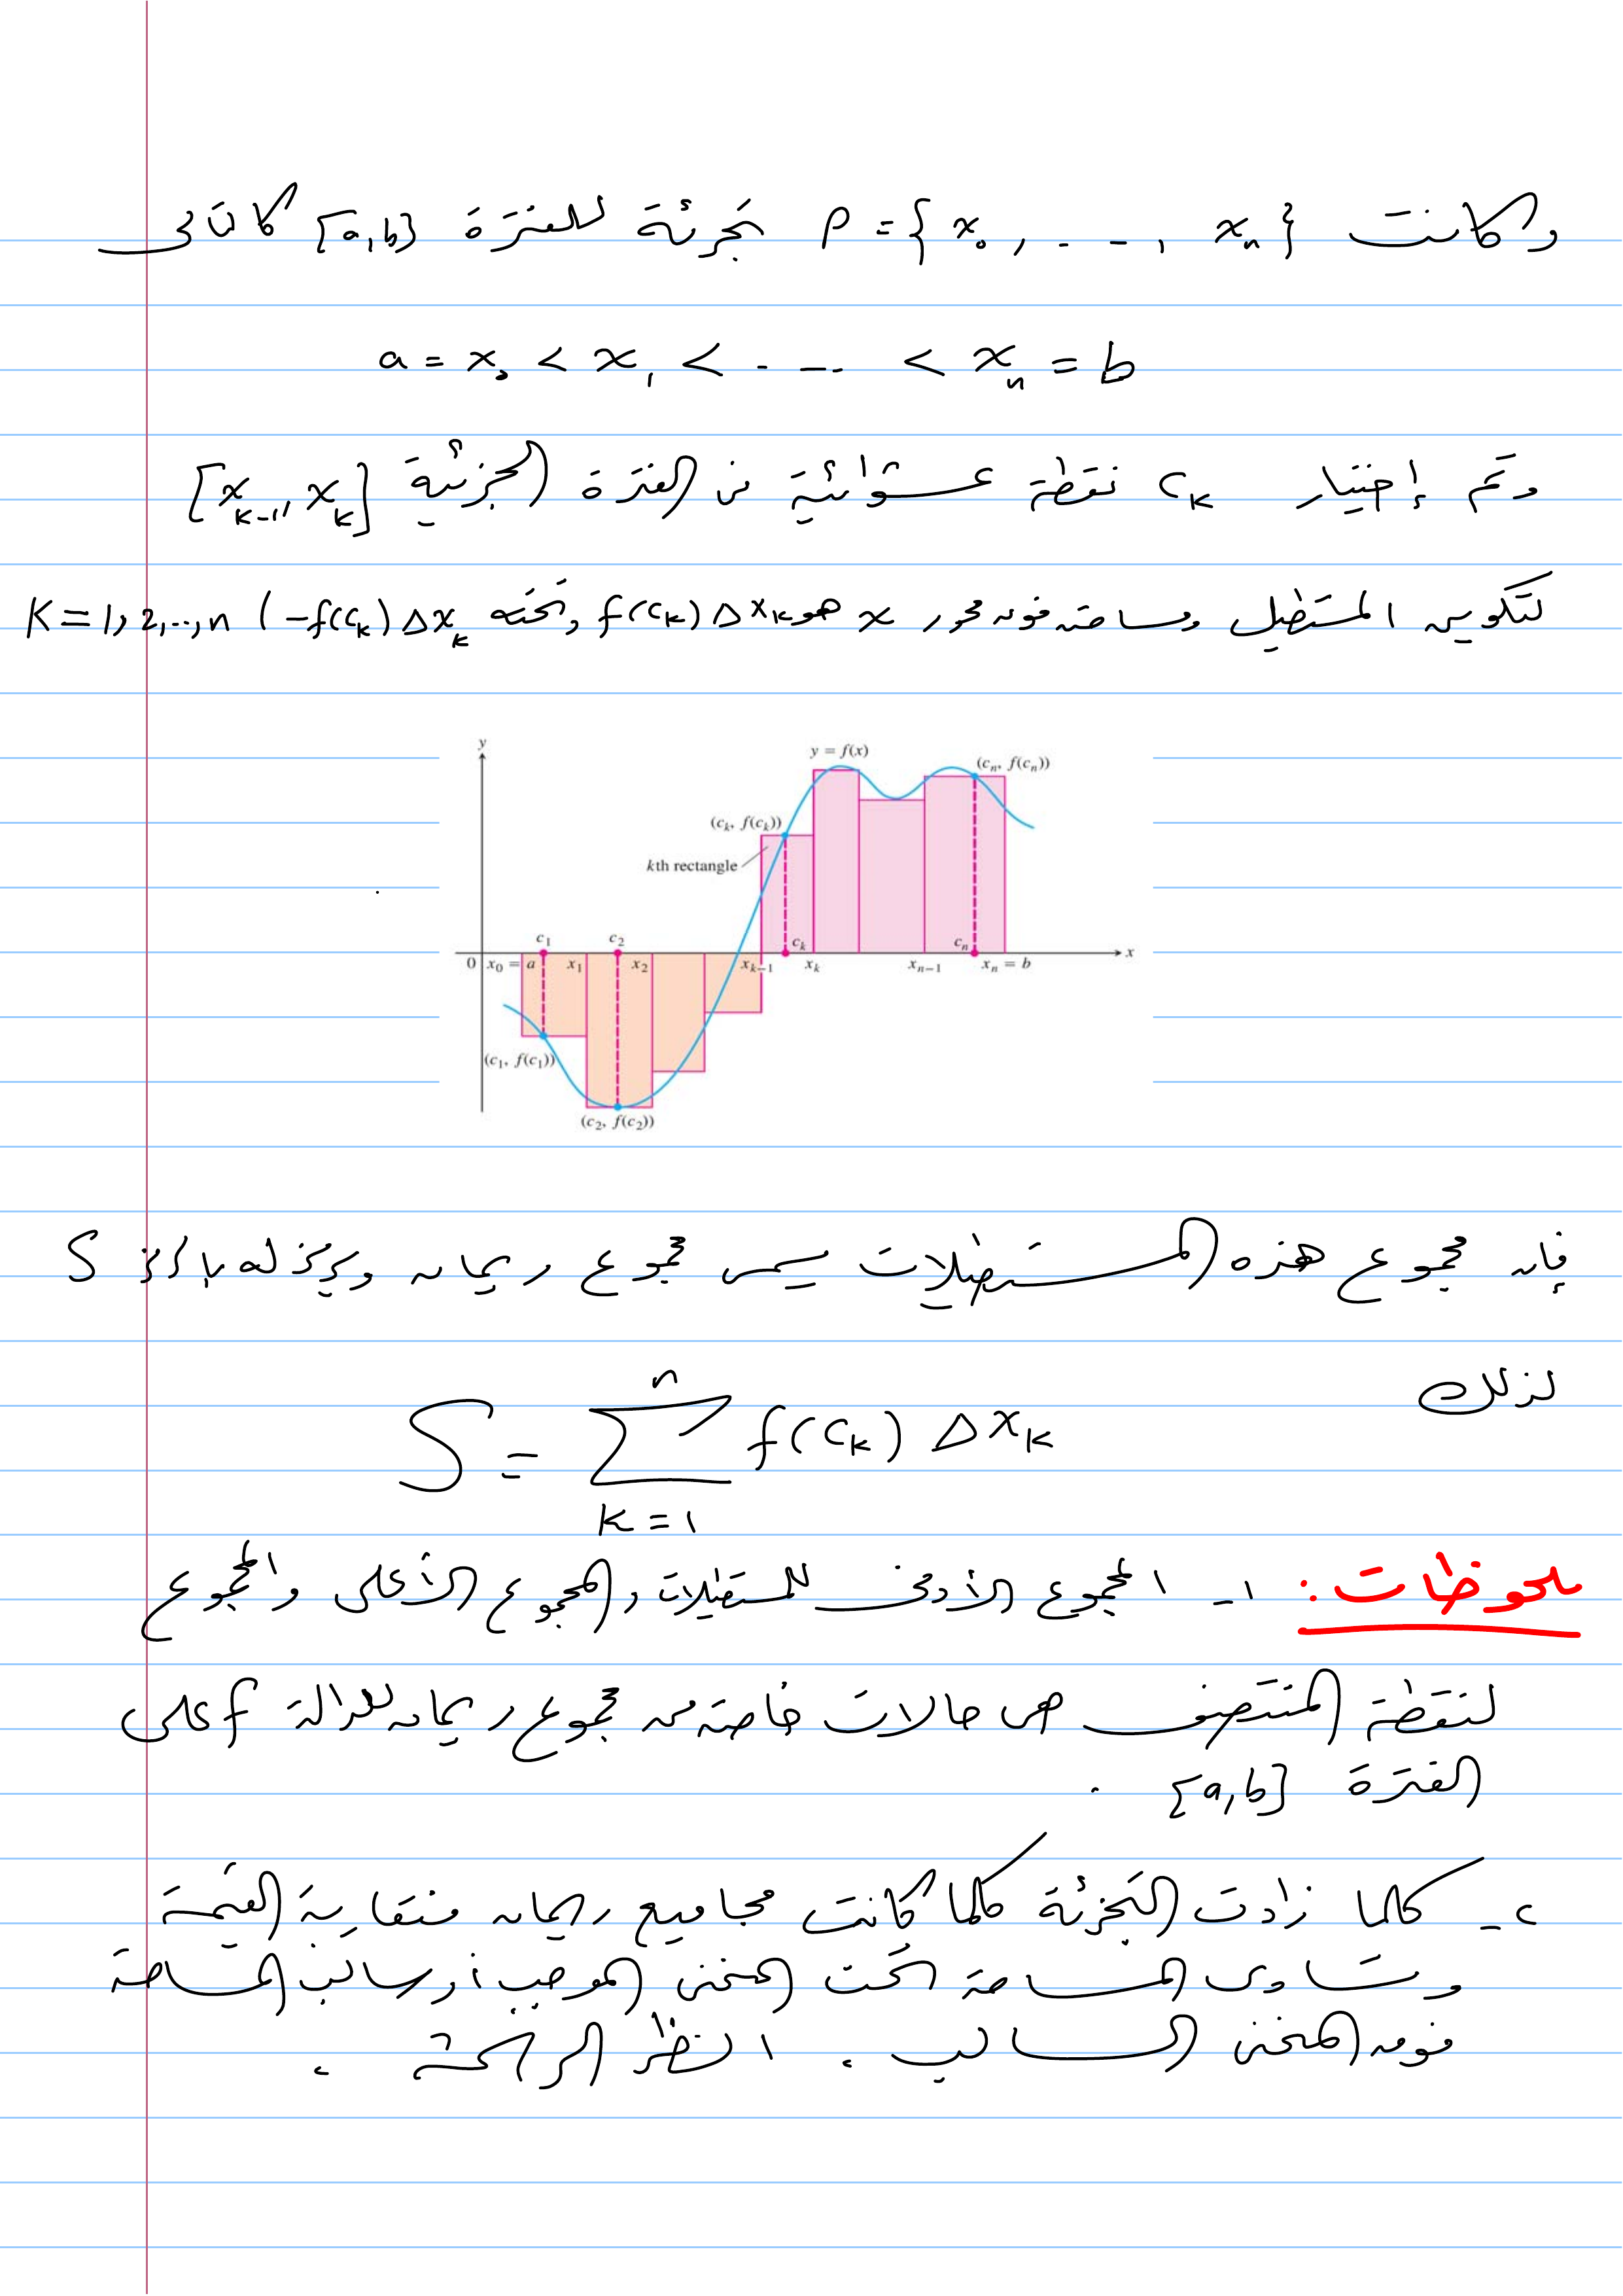 وكانت P = { x₀ , . . . , xₙ } تجزئة للفترة [a,b] كالآتى
a = x₀ < x₁ < . . . . < xₙ = b
وتم إختيار cₖ نقطة عشوائية من الفترة الجزئية [xₖ₋₁, xₖ]
لتكوين المستطيل ومساحته فوق محور x هو f(cₖ) Δxₖ وتحته (-f(cₖ) Δxₖ K = 1, 2, ..., n
y
y = f(x)
(cₙ, f(cₙ))
(cₖ, f(cₖ))
kth rectangle
c₁ c₂ cₖ cₙ
0 x₀ = a x₁ x₂ xₖ₋₁ xₖ xₙ₋₁ xₙ = b x
(c₁, f(c₁))
(c₂, f(c₂))
فإن مجموع هذه المستطيلات يسمى مجموع ريمان ويرمز له بالرمز S
لذلك
S = ∑ₖ₌₁ⁿ f(cₖ) Δxₖ
ملحوظات : ١- المجموع الأدنى للمستطيلات والمجموع الأعلى والمجموع
لنقطة المنتصف هى حالات خاصة من مجموع ريمان للدالة f على
الفترة [a,b] .
٢- كلما زادت التجزئة كلما كانت مجاميع ريمان متقاربة القيمة
وتساوى المساحة تحت المنحنى الموجب أو سالب المساحة
فوق المنحنى السالب . انظر